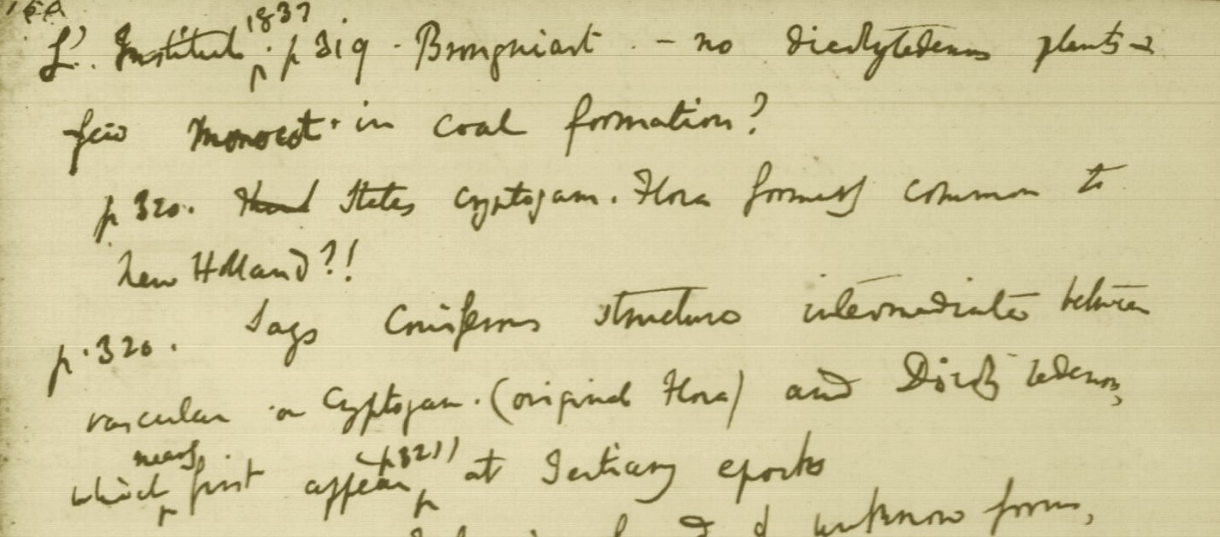 L'. Institut 1837 . p 319 . Brongniart . - no dicotyledenous plants &
few Monocot. in coal formation?
p 320. States cryptogam. Flora formerly common to
New Holland?!
p. 320. Says Coniferous structure intermediate between
vascular or Cryptogam. (original Flora) and Dicotyledenous,
which nearly first appear (p 321) at Tertiary epochs
unknown forms,